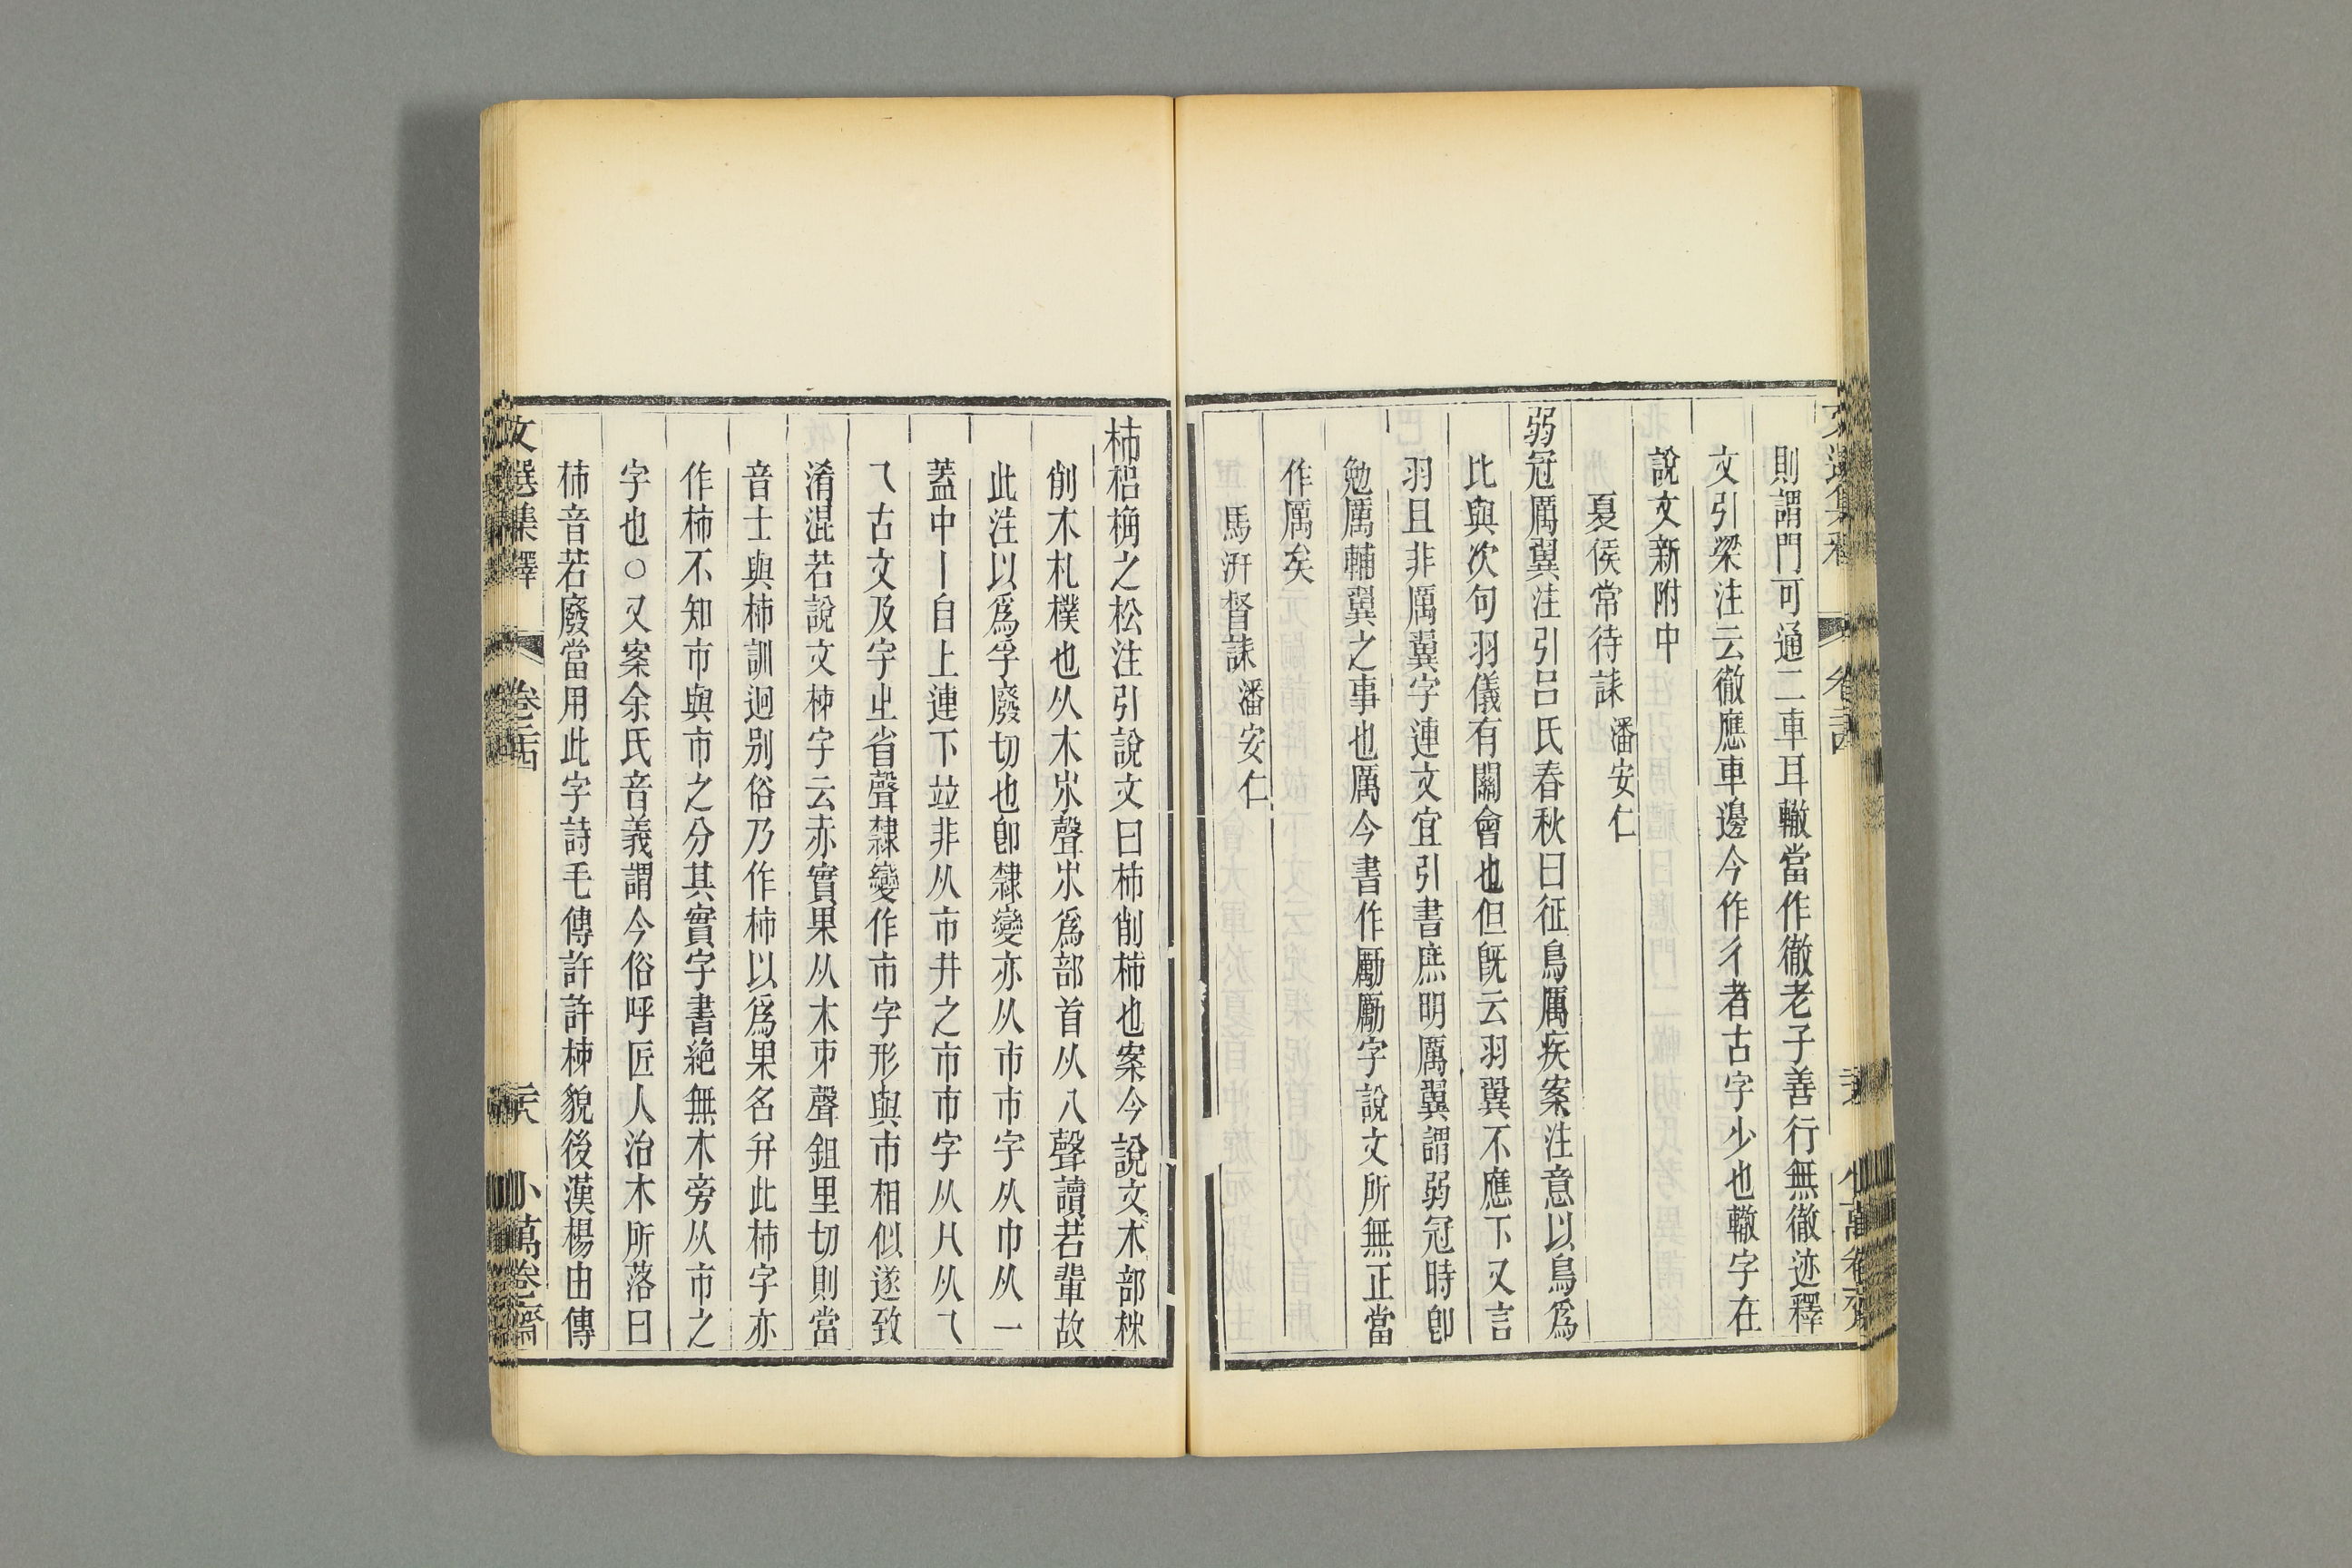 則謂門可通二車耳轍當作徹老子善行無徹迹釋
文引梁注云徹應車邊今作彳者古字少也轍字在
說文新附中
夏侯常待誄 潘安仁
弱冠厲翼注引呂氏春秋曰征鳥厲疾案注意以鳥爲
比與次句羽儀有關會也但旣云羽翼不應下又言
羽且非厲翼字連文宜引書庶明厲翼謂弱冠時卽
勉厲輔翼之事也厲今書作勵勵字說文所無正當
作厲矣
馬汧督誄 潘安仁
柿梠桷之松注引說文曰柿削柿也案今說文木部㭉
削木札樸也从木𣎵聲𣎵爲部首从八聲讀若輩故
此注以爲孚廢切也卽隸變亦从巿巿字从巾从一
蓋中丨自上連下竝非从市井之市市字从冂从乁
乁古文及字㞢省聲隸變作市字形與巿相似遂致
淆混若說文柹字云赤實果从木𠂔聲鉏里切則當
音士與柿訓迥别俗乃作柿以爲果名弁此柿字亦
作柿不知市與巿之分其實字書絶無木旁从市之
字也○又案余氏音義謂今俗呼匠人治木所落曰
柿音若廢當用此字詩毛傳許許柹貌後漢楊由傳
文選集釋 卷二十四 二六 小萬卷齋